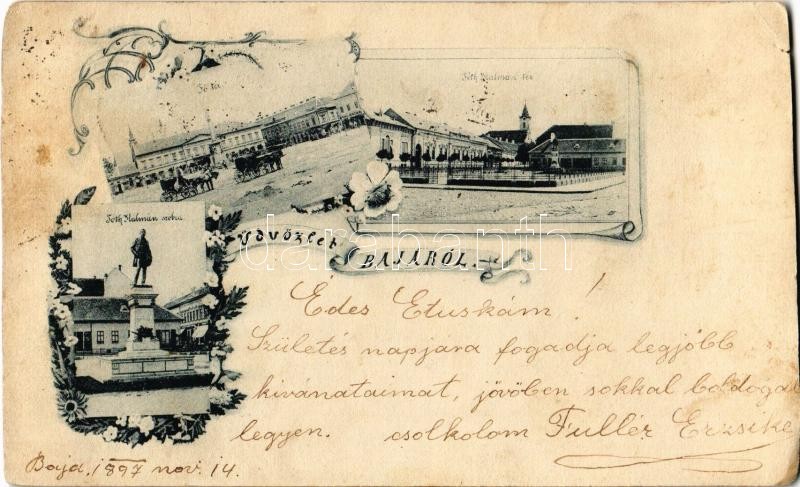 Fő tér.
Tóth Kálmán tér
Tóth Kálmán szobra.
ÜDVÖZLET
BAJÁRÓL.
darabanth
Édes Etuskám!
Születés napjara fogadja legjobb
kivánataimat, jövöben sokkal boldogab
legyen. csolkolom Fullér Erzsike
Baja, 1897 nov. 14.